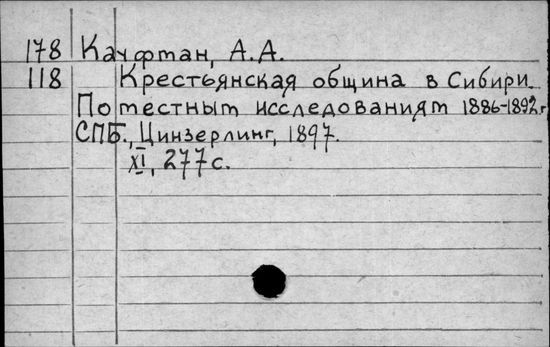 178 Кауфман, А.А.
118 Крестьянская община в Сибири.
По местным исследованиям 1886-1892 г.
СПБ., Цинзерлинг, 1897.
XI, 277 с.